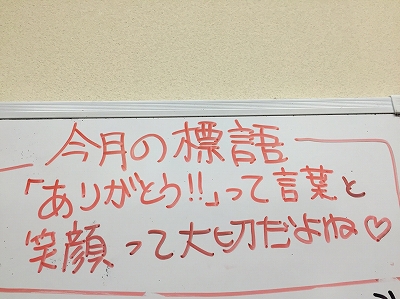 今月の標語
「ありがとう!!」って言葉と
笑顔って大切だよね♡